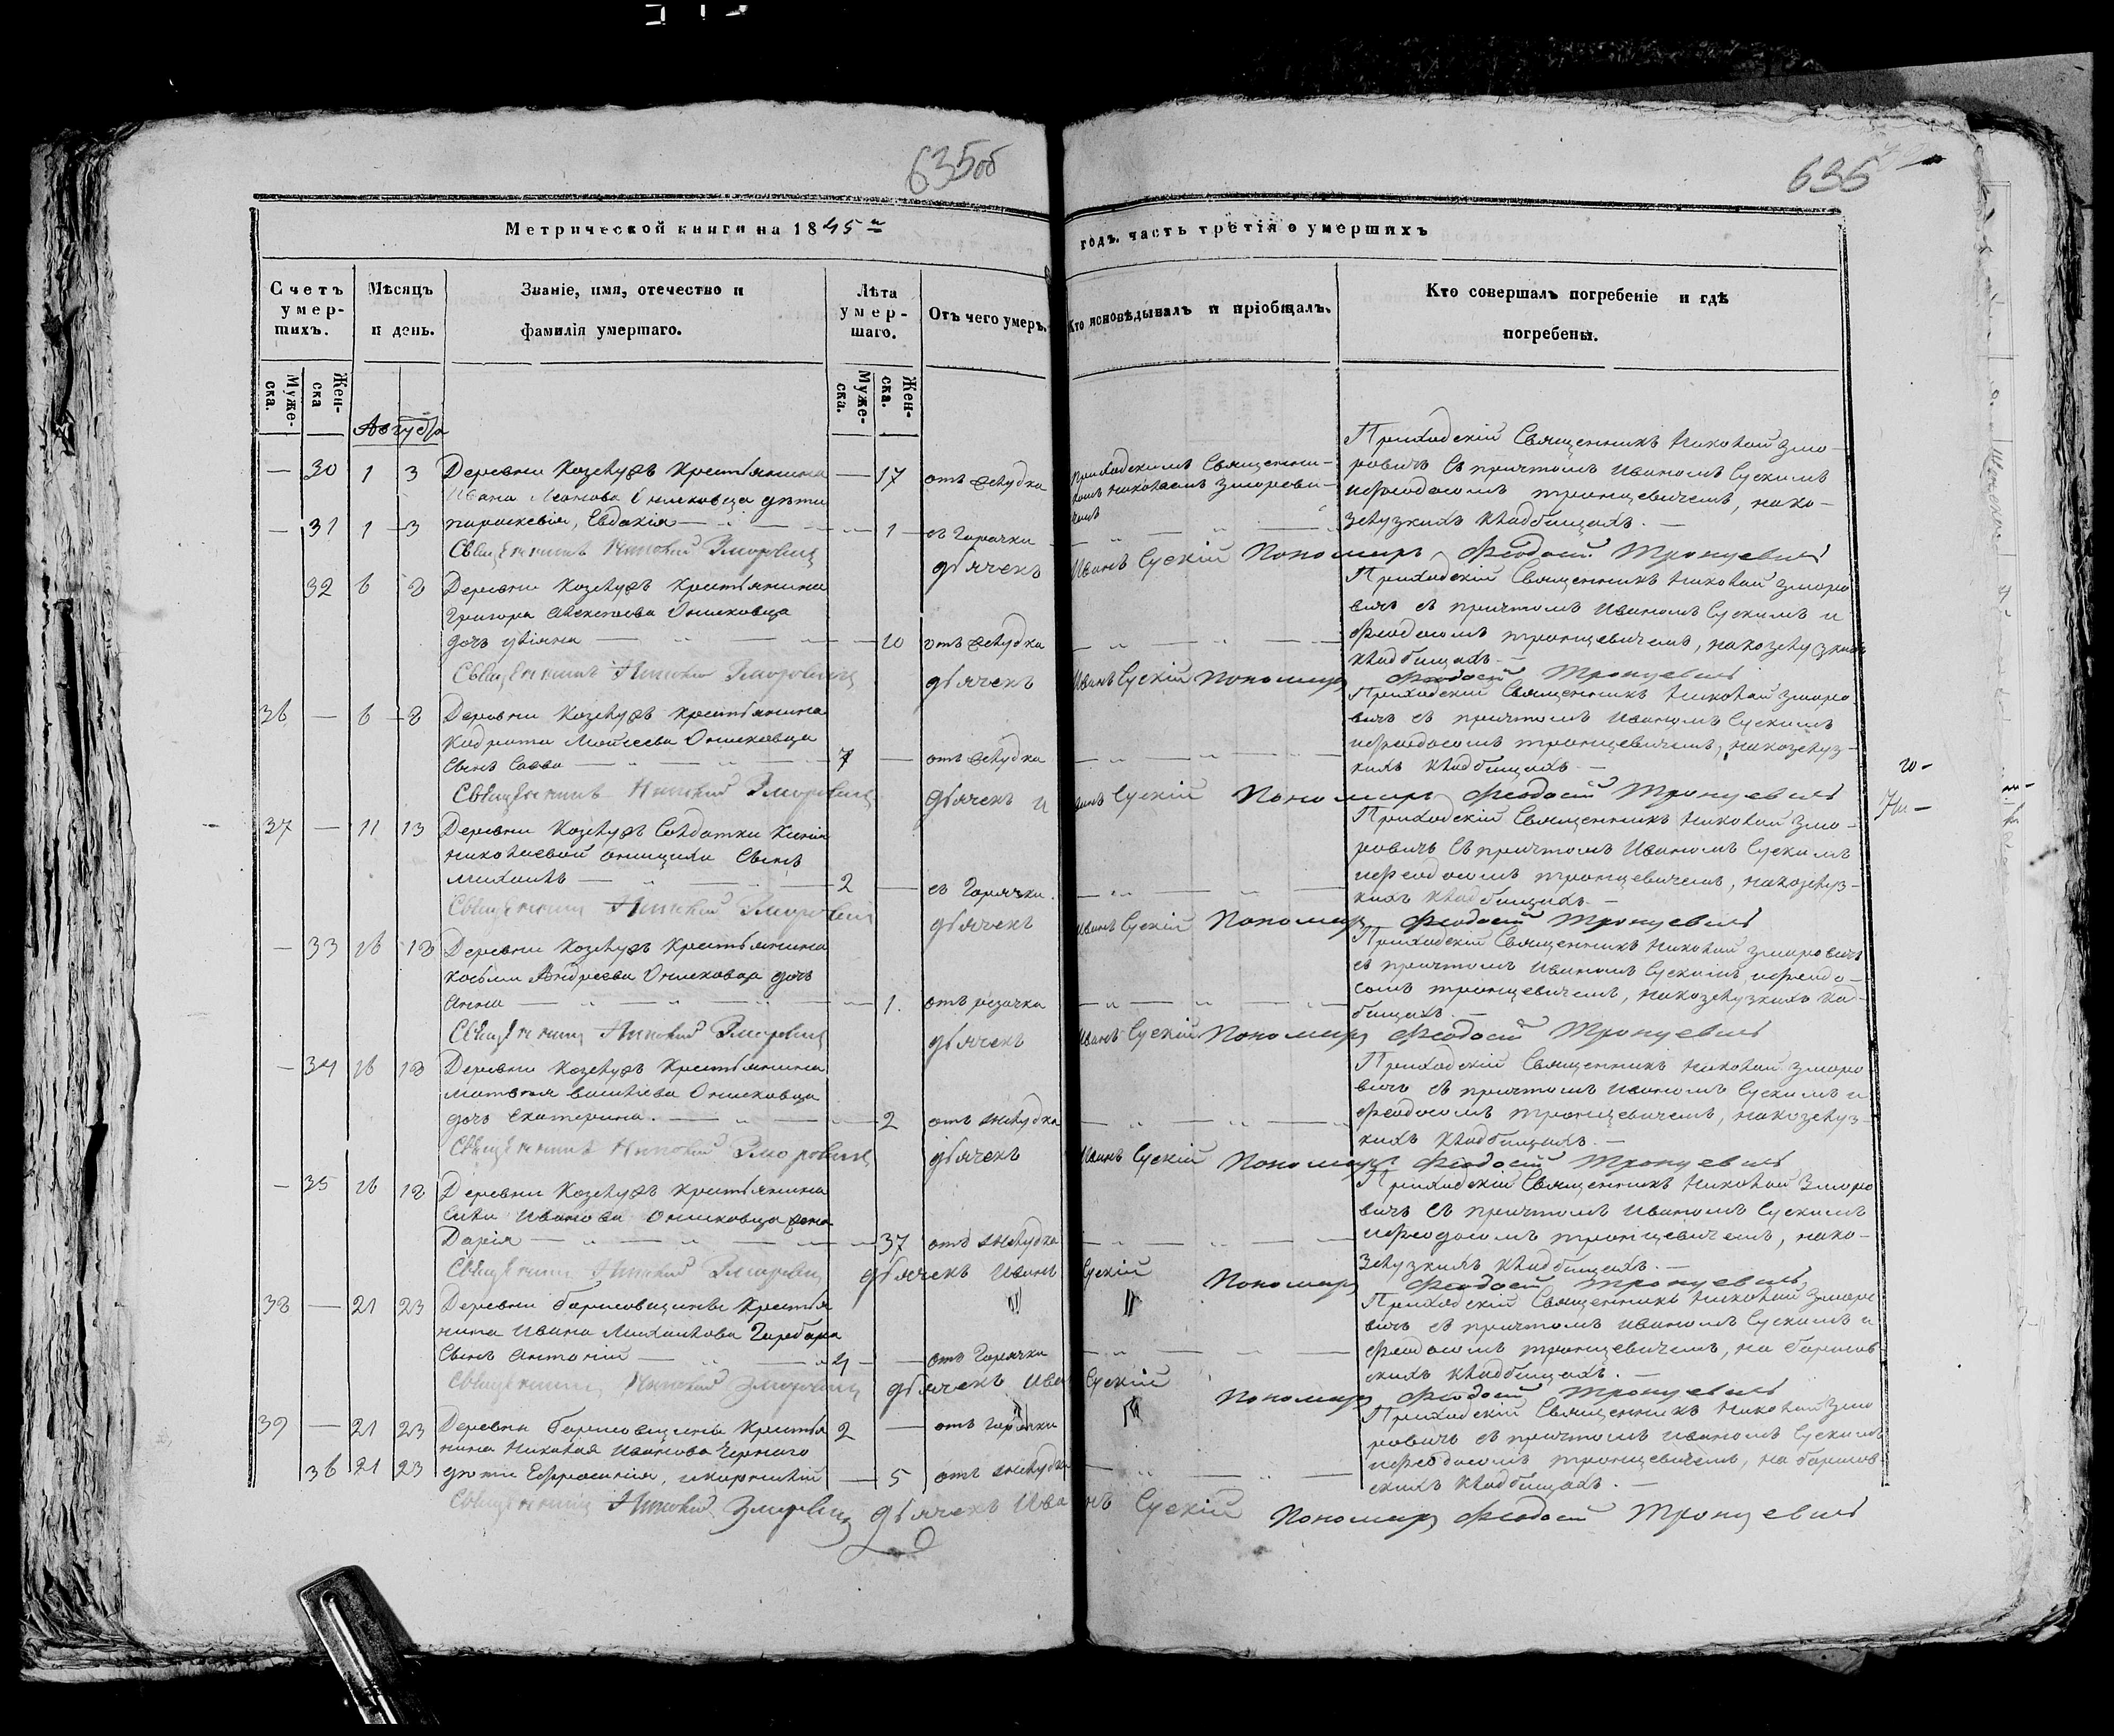 635об
636
Метрической книги на 1845й
годъ, часть третія о умершихъ
Счетъ умер-шихъ.
Мѣсяцъ и день.
Званіе, имя, отечество и фамилія умершаго.
Лѣта умер-шаго.
Отъ чего умеръ.
Кто исповѣдывалъ и пріобщалъ.
Кто совершалъ погребеніе и гдѣ погребены.
Муже-ска.
Жен-ска
Муже-ска.
Жен-ска.
Августа
— 30 1 3 Деревни Козлудъ Крестьянина — 17 отъ желудка
Ивана Леонова Онисковца дѣти
— 31 1 3 параскевія, Евдокія — 1 — съ Горячки
приходскимъ Священни-
комъ Николаемъ Зморови-
чемъ
Приходскій Священникъ Николай Змо-
ровичъ съ причтомъ Иваномъ Сускимъ
и Феодосомъ тронцевичемъ, на ко-
злузкихъ кладбищахъ. —
Священникъ Николай Зморовичъ дьячекъ Иванъ Сускій Пономарь Феодосій Тронцевичъ
32 6 8 Деревни Козлудъ Крестьянина
Григора Алексеева Онисковца
дочь уліяна — 20 отъ желудка
Приходскій Священникъ Николай Зморо
вичъ съ причтомъ Иваномъ Сускимъ и
Феодосомъ тронцевичемъ, на козлузкихъ
кладбищахъ. —
Священникъ Николай Зморовичъ дьячекъ Иванъ Сускій Пономарь Феодосій Тронцевичъ
36 — 6 8 Деревни Козлудъ Крестьянина
Кодрата Мойсеева Онисковца
Сынъ Савва — 7 — отъ желудка
Приходскій Священникъ Николай Зморо
вичъ съ причтомъ Иваномъ Сускимъ
и Феодосомъ тронцевичемъ, на козлуз-
кихъ кладбищахъ —
Священникъ Николай Зморовичъ дьячекъ Иванъ Сускій Пономарь Феодосій Тронцевичъ
37 — 11 13 Деревни Козлудъ Солдатки
Николаевой Сынъ
михаилъ — 2 — съ Горячки.
Приходскій Священникъ Николай Змо-
ровичъ съ причтомъ Иваномъ Сускимъ
и Феодосомъ тронцевичемъ, на козлуз-
кихъ кладбищахъ. —
Священникъ Николай Зморовичъ дьячекъ Иванъ Сускій Пономарь Феодосій Тронцевичъ
— 33 16 18 Деревни Козлудъ Крестьянина
Косьми Андреева Онисковца дочь
Анна — 1. отъ
Приходскій Священникъ Николай Зморовичъ
съ причтомъ Иваномъ Сускимъ, и Феодо-
сомъ тронцевичемъ, на козлузкихъ клад-
бищахъ. —
Священникъ Николай Зморовичъ дьячекъ Иванъ Сускій Пономарь Феодосій Тронцевичъ
— 34 16 18 Деревни Козлудъ Крестьянина
матвея василева Онисковца
дочь екатерина. — 2 отъ желудка
Приходскій Священникъ Николай Зморо
вичъ съ причтомъ Иваномъ Сускимъ и
Феодосомъ тронцевичемъ, на козлуз-
кихъ кладбищахъ. —
Священникъ Николай Зморовичъ дьячекъ Иванъ Сускій Пономарь Феодосій Тронцевичъ
— 35 16 18 Деревни Козлудъ Крестьянина
Силы Иванова Онисковца жена
Дарія — 37 отъ желудка
Приходскій Священникъ Николай Зморо
вичъ съ причтомъ Иваномъ Сускимъ
и Феодосомъ тронцевичемъ, на ко-
злузкихъ кладбищахъ. —
Священникъ Николай Зморовичъ дьячекъ Иванъ Сускій Пономарь Феодосій Тронцевичъ
38 — 21 23 Деревни Борисовщины Крестья
нина Ивана Михаилова Гарбара
Сынъ Антоній — 4 — отъ Горячки
Приходскій Священникъ Николай Зморо
вичъ съ причтомъ Иваномъ Сускимъ и
Феодосомъ тронцевичемъ, на борисов-
скихъ кладбищахъ. —
Священникъ Николай Зморовичъ дьячекъ Иванъ Сускій Пономарь Феодосій Тронцевичъ
39 — 21 23 Деревни Борисовщины Крестья 2 — отъ горячки
нина Николая Иванова Чернаго
36 21 23 дѣти Ефросинія, — 5 отъ желудка
Приходскій Священникъ Николай Змо
ровичъ съ причтомъ Иваномъ Сускимъ
и Феодосомъ тронцевичемъ, на борисов-
скихъ кладбищахъ. —
Священникъ Николай Зморовичъ дьячекъ Иванъ Сускій Пономарь Феодосій Тронцевичъ